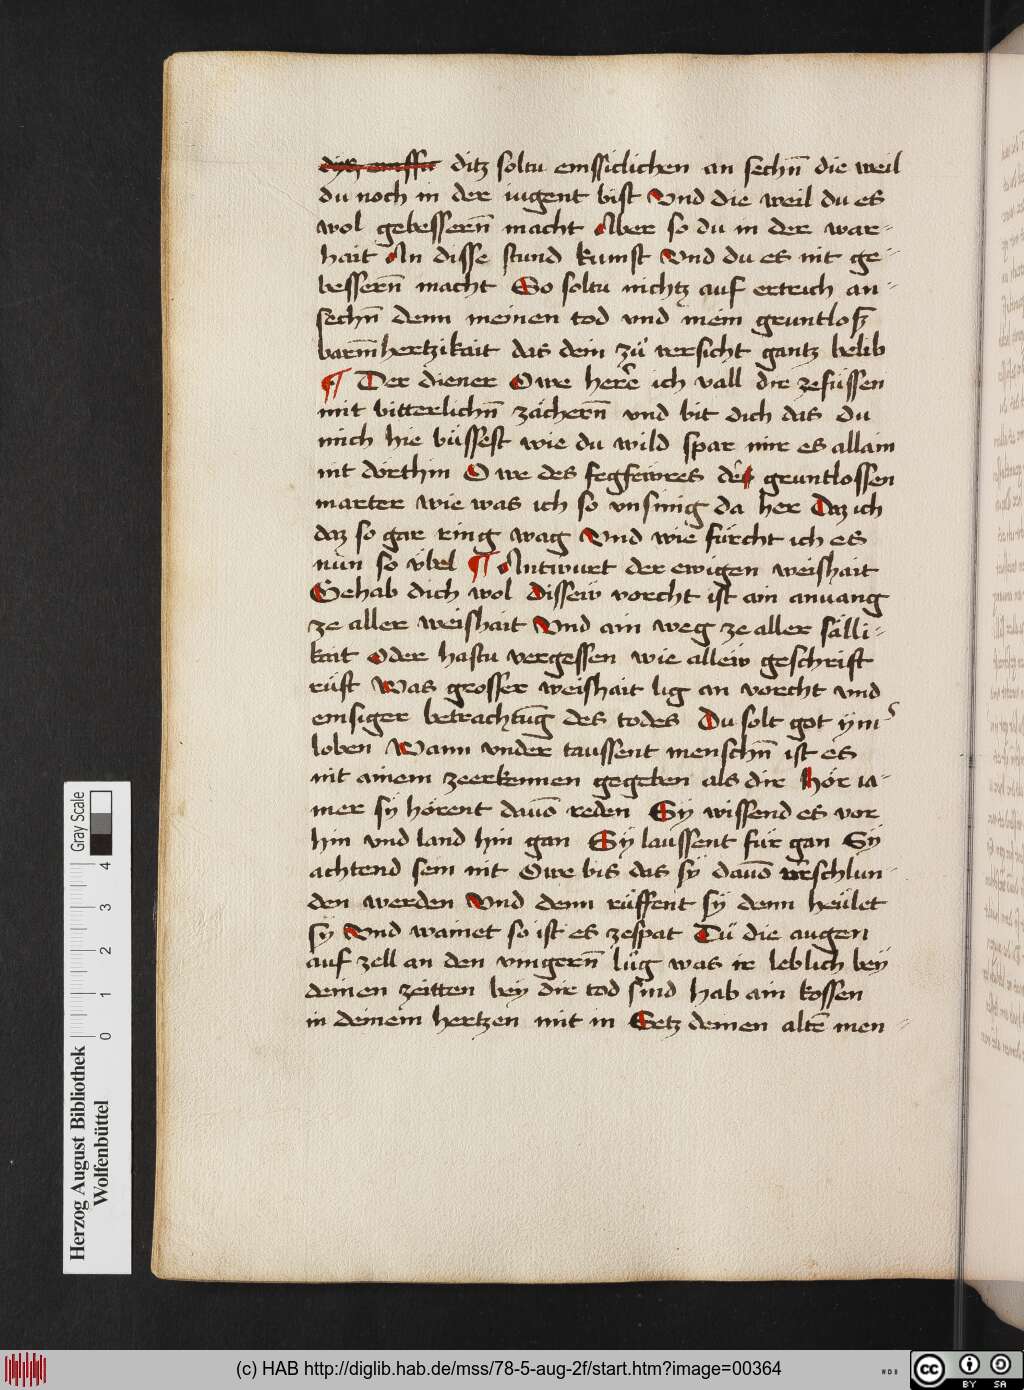 ditz soltu emssiclichen an sechn̄ die weil
du noch in der iugent bist Vnd die weil du es
wol gebessern̄ macht Aber so du in der war-
hait An disse stund kumst Vnd du es nit ge-
bessern̄ macht So soltu nichtz auf ertrich an-
sechn̄ denn meinen tod vnd mein gruntlosz
barm̄hertzikait das dein zů versicht gantz belib
¶ Der diener Owe here ich vall dir zefüssen
mit bitterlichn̄ zächern̄ vnd bit dich das du
mich hie büssest wie du wild spar mir es allain
nit dörthin Owe des fegfewres der gruntlossen
marter wie was ich so vnsinnig da her Daz ich
daz so gar ring wag Vnd wie fürcht ich es
nun so v̈bel ¶ Antwurt der ewigen weishait
Gehab dich wol Disseẅ vorcht ist ain anuang
ze aller weishait Vnd ain weg ze aller sälli-
kait Oder hastu vergessen wie alleẅ geschrift
rüft Was grosser weishait lig an vorcht vnd
emsiger betrachtūg des todes Du solt got ÿm̄
loben Wann vnder taussent menschn̄ ist es
nit ainem zeerkennen gegeben als dir Hör ia-
mer sÿ hörent dauō reden Sÿ wissend es vor
hin vnd land hin gan Sÿ laussent für gan Sÿ
achtend sein nit Owe bis das sÿ dauō verschlun-
den werden Vnd denn rüffent sÿ denn heület
sÿ Vnd wainet so ist es zespat Tů die augen
auf zell an den vingern̄ lůg was ir leblich beÿ
deinen zeitten beÿ dir tod sind hab ain kossen
in deinem hertzen mit in Setz deinen altē men-
Herzog August Bibliothek
Wolfenbüttel
0 1 2 3 4 Gray Scale
(c) HAB http://diglib.hab.de/mss/78-5-aug-2f/start.htm?image=00364
WDB
cc BY SA